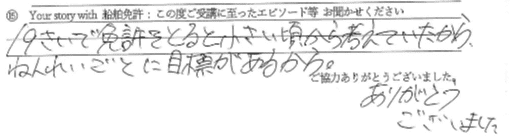 ⑮ Your story with 船舶免許：この度ご受講に至ったエピソード等 お聞かせください
19さいで免許をとると小さい頃から考えていたから、
ねんれいごとに目標があるから。
ご協力ありがとうございました。
ありがとう
ございました